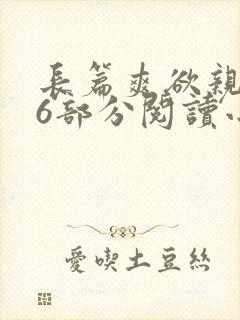 長篇爽欲親
6部分閱讀小
愛喫土豆絲